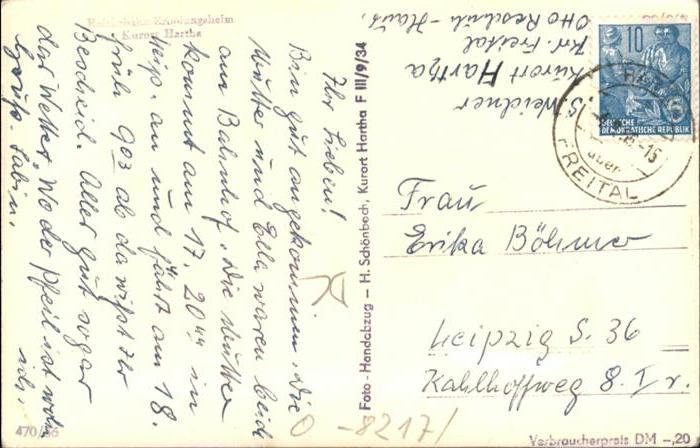 Erholungsheim
Kurort Hartha
Ihr Lieben!
Bin gut angekommen. Die
Mutter und Ella waren beide
am Bahnhof. Die Mutter
kommt am 17. 20⁰⁰ in
Leip. an und fährt am 18.
früh 9⁰³ ab da wißt Ihr
Bescheid. Alles gut sogar
das Wetter. Wo der Pfeil ist wohn
ich.
470/56
Foto - Handabzug - H. Schönbach, Kurort Hartha F III/9/34
S. Weidner
Kurort Hartha
Kr. Freital
Otto Haus,
10
DEUTSCHE
DEMOKRATISCHE REPUBLIK
über
FREITAL
Frau
Erika Böhme
Leipzig S. 36
Kahlhoffweg 8. I r.
0-8217/
Verbraucherpreis DM -,20